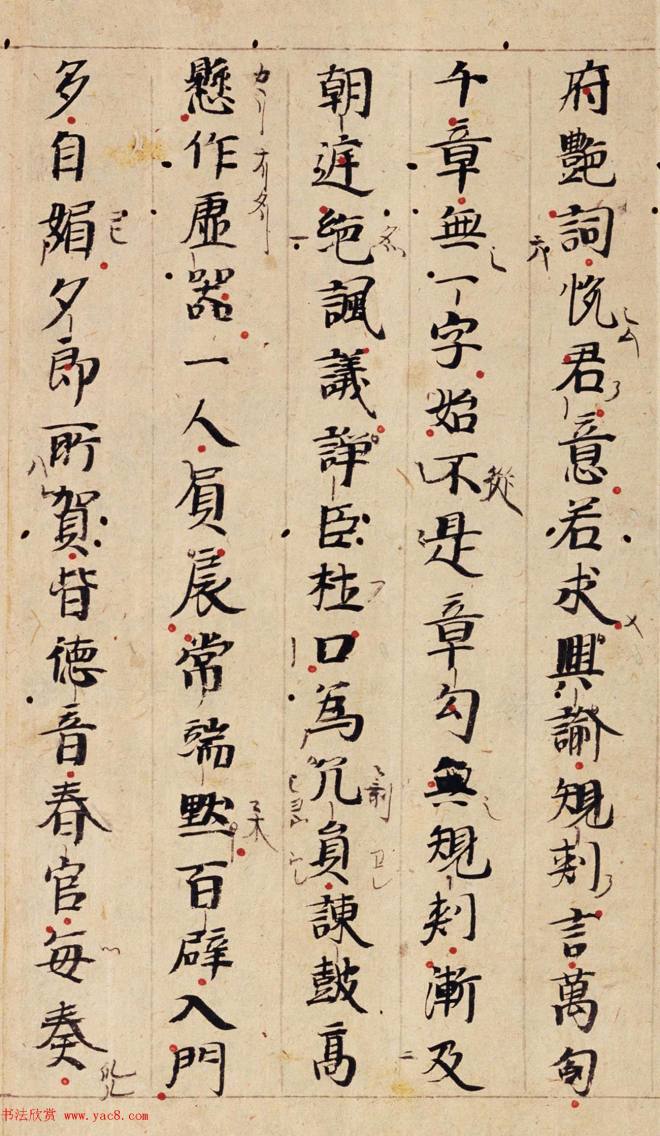 府艶詞悦君意若求興諭規刾言萬句
千章無一字始不是章勾無規刾漸及
從
朝遅絶諷議諍臣杜口為冗員諫鼓高
懸作虛器一人負扆常端默百辟入門
多自媚夕郎所賀皆德音春官每奏
书法欣赏 www.yac8.com